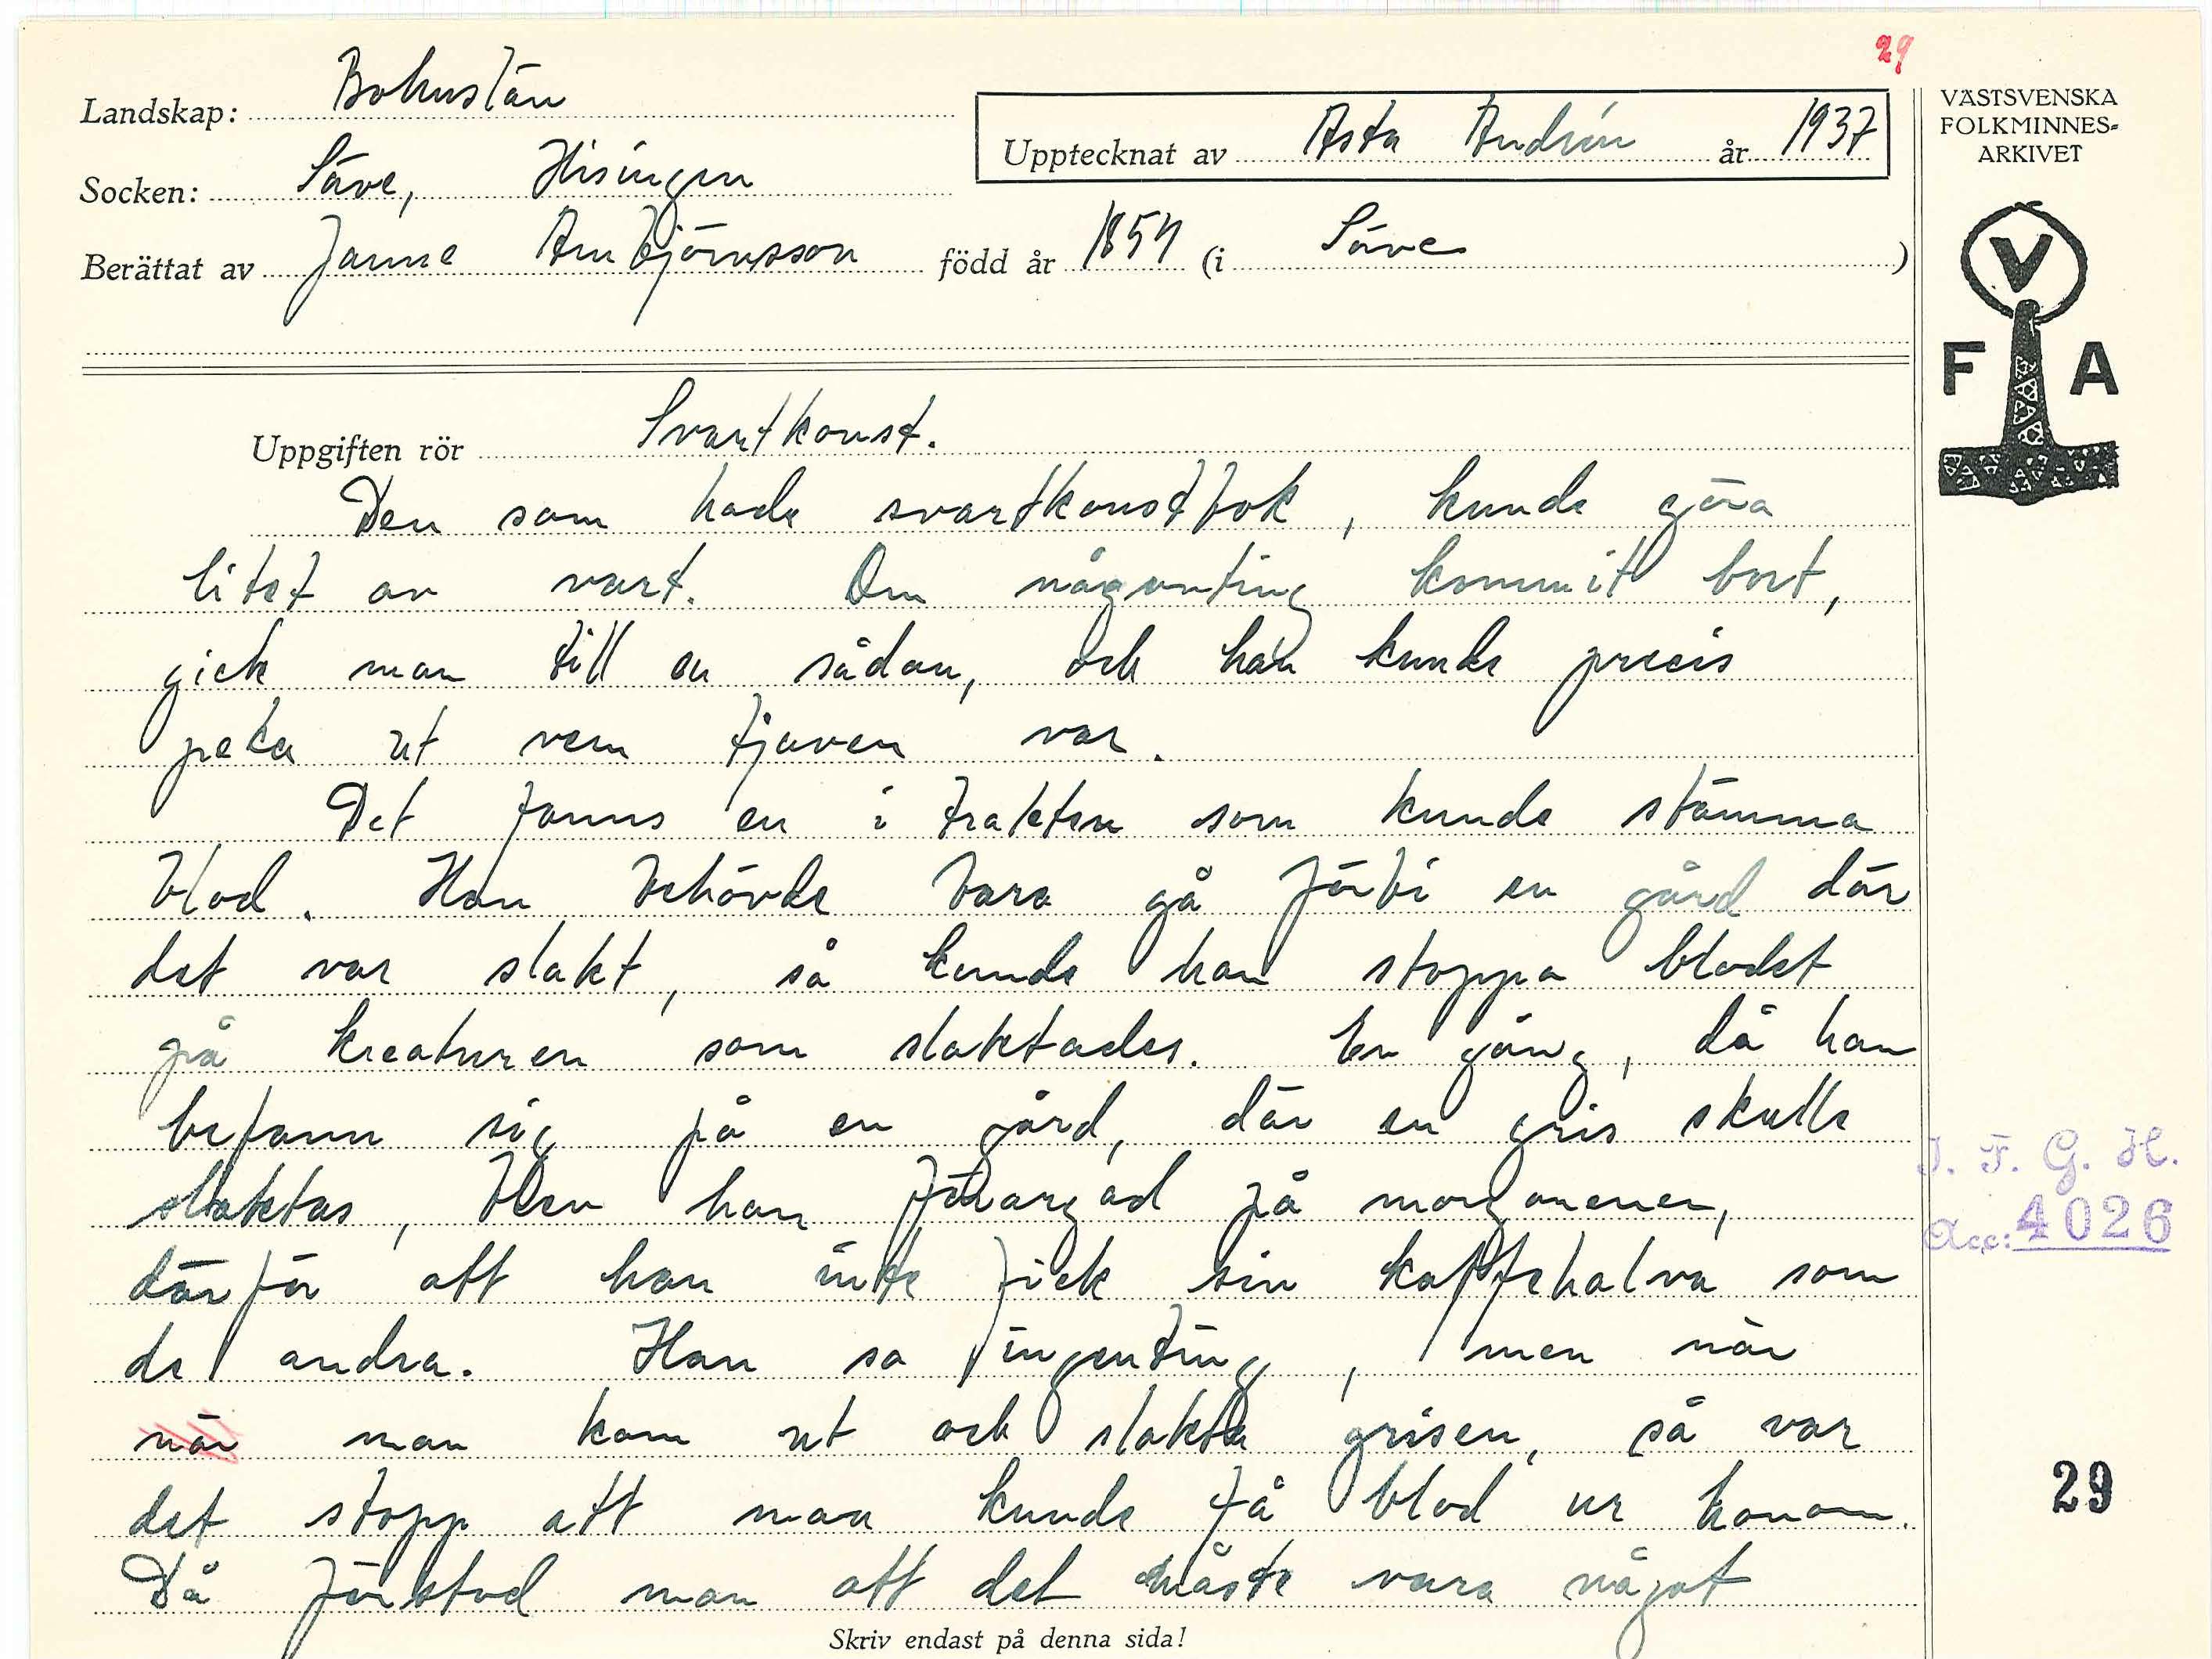 29
Landskap: Bohuslän
Upptecknat av Asta Andrén år 1937
Socken: Säve, Hisingen
Berättat av Janne Arnbjörnsson född år 1854 (i Säve )
VÄSTSVENSKA
FOLKMINNES-
ARKIVET
V
F A
Uppgiften rör Svartkonst.
Den som hade svartkonstbok, kunde göra
litet av vart. Om någonting kommit bort,
gick man till en sådan, och han kunde precis
peka ut vem tjuven var.
Det fanns en i trakten som kunde stämma
blod. Han behövde bara gå förbi en gård där
det var slakt, så kunde han stoppa blodet
på kreaturen som slaktades. En gång, då han
befann sig på en gård, där en gris skulle
slaktas, blev han förargad på morgonen,
därför att han inte fick sin kaffehalva som
de andra. Han sa ingenting, men när
när man kom ut och slakta grisen, så var
det stopp att man kunde få blod ur honom.
Då förstod man att det måste vara något
Skriv endast på denna sida!
I. F. G. H.
Acc: 4026
29